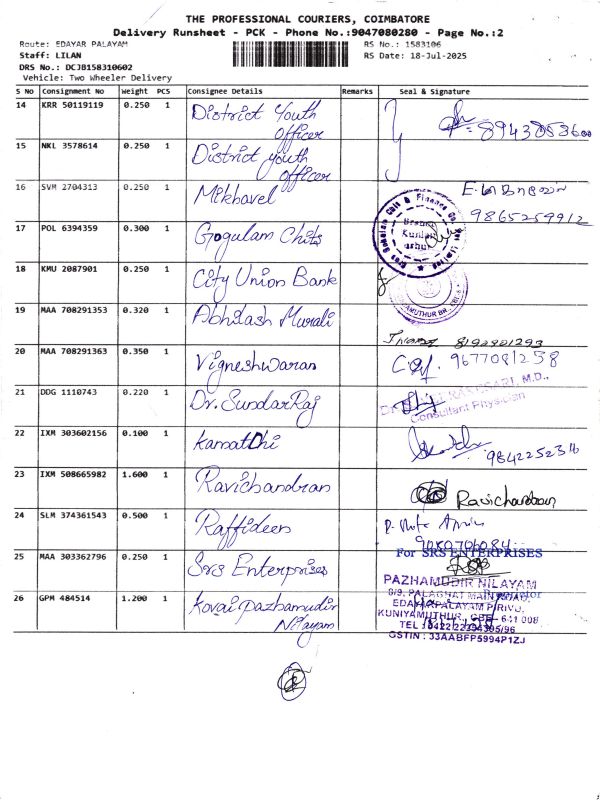 THE PROFESSIONAL COURIERS, COIMBATORE
Delivery Runsheet - PCK - Phone No.:9047080280 - Page No.:2
Route: EDAYAR PALAYAM
RS No.: 1583106
Staff: LILAN
RS Date: 18-Jul-2025
DRS No.: DCJB158310602
Vehicle: Two Wheeler Delivery
S NO Consignment No Weight PCS Consignee Details Remarks Seal & Signature
14 KRR 50119119 0.250 1 District Youth Officer
15 NKL 3578614 0.250 1 District youth officer
16 SVM 2704313 0.250 1 Mikhavel
9865259912
17 POL 6394359 0.300 1 Gogulam Chits
18 KMU 2087901 0.250 1 City Union Bank
19 MAA 708291353 0.320 1 Abhilash Murali
8192801293
20 MAA 708291363 0.350 1 Vigneshwaran
9677081258
21 DDG 1110743 0.220 1 Dr. SundarRaj
M.D.,
Consultant Physician
22 IXM 303602156 0.100 1
23 IXM 508665982 1.600 1 Ravichandran
Ravichandran
24 SLM 374361543 0.500 1 Raffideen
25 MAA 303362796 0.250 1 Srs Enterprises
For SRS ENTERPRISES
26 GPM 484514 1.200 1 Kovai Pazhamudir Nilayam
PAZHAMUDIR NILAYAM
6/9, PALAGHAT MAIN ROAD,
EDAYARPALAYAM PIRIVU,
KUNIYAMUTHUR, CBE- 641 008
GSTIN : 33AABFP5994P1ZJ